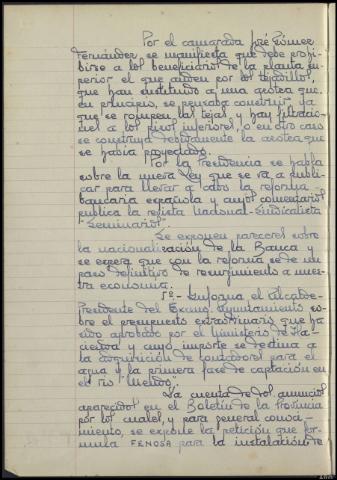 Por el camarada José Gómez
Fernández, se manifiesta que debe prohi-
birse a los beneficiarios de la planta su-
perior el que anden por los tejadillos,
que han sustituido a una azotea que,
en principio, se pensaba construir, ya
que se rompen las tejas y hay filtracio-
nes a los pisos inferiores, o en otro caso
se construya debidamente la azotea que
se había proyectado.
Por la Presidencia se habla
sobre la nueva Ley que se va a publi-
car para llevar a cabo la reforma
bancaria española y cuyos comentarios
publica la revista Nacional-Sindicalista
"Seminarios"
Se exponen pareceres sobre
la nacionalización de la Banca y
se espera que con la reforma se dé un
paso definitivo de resurgimiento a nues-
tra economía.
5º.- Informa el Alcalde-
Presidente del Excmo. Ayuntamiento so-
bre el presupuesto extraordinario que ha
sido aprobado por el Ministerio de Ha-
cienda y cuyo importe se destina a
la adquisición de contadores para el
agua y la primera fase de captación en
el río
Da cuenta de los anuncios
aparecidos en el Boletín de la Provincia
por los cuales, y para general conoci-
miento, se expone la petición que for-
mula FENOSA para la instalación de